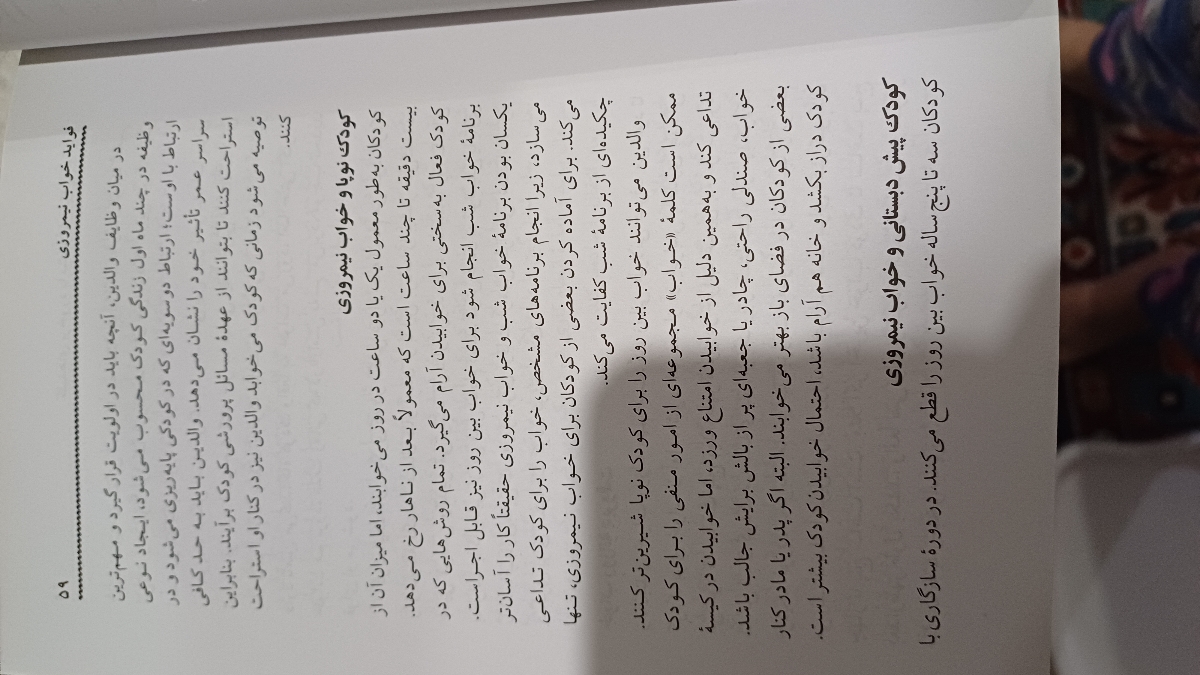 فواید خواب نیمروزی ۵۹
در میان وظایف والدین، آنچه باید در اولویت قرار گیرد و مهم‌ترین
وظیفه در چند ماه اول زندگی کودک محسوب می‌شود، ایجاد نوعی
ارتباط با اوست؛ ارتباط دوسویه‌ای که در کودکی پایه‌ریزی می‌شود و در
سراسر عمر تأثیر خود را نشان می‌دهد. والدین باید به حد کافی
استراحت کنند تا بتوانند از عهدهٔ مسائل پرورشی کودک برآیند. بنابراین
توصیه می‌شود زمانی که کودک می‌خوابد والدین نیز در کنار او استراحت
کنند.
کودک نوپا و خواب نیمروزی
کودکان به‌طور معمول یک یا دو ساعت در روز می‌خوابند، اما میزان آن از
بیست دقیقه تا چند ساعت است که معمولاً بعد از ناهار رخ می‌دهد.
کودک فعال به‌سختی برای خوابیدن آرام می‌گیرد. تمام روش‌هایی که در
برنامهٔ خواب شب انجام شود برای خواب بین روز نیز قابل اجراست.
یکسان بودن برنامهٔ خواب شب و خواب نیمروزی حقیقتاً کار را آسان‌تر
می‌سازد، زیرا انجام برنامه‌های مشخص، خواب را برای کودک تداعی
می‌کند. برای آماده کردن بعضی از کودکان برای خواب نیمروزی، تنها
چکیده‌ای از برنامهٔ شب کفایت می‌کند.
والدین می‌توانند خواب بین روز را برای کودک نوپا شیرین‌تر کنند.
ممکن است کلمهٔ «خواب» مجموعه‌ای از امور منفی را برای کودک
تداعی کند و به‌همین دلیل از خوابیدن امتناع ورزد، اما خوابیدن در کیسهٔ
خواب، صندلی راحتی، چادر یا جعبه‌ای پر از بالش برایش جالب باشد.
بعضی از کودکان در فضای باز بهتر می‌خوابند. البته اگر پدر یا مادر کنار
کودک دراز بکشد و خانه هم آرام باشد، احتمال خوابیدن کودک بیشتر است.
کودک پیش دبستانی و خواب نیمروزی
کودکان سه تا پنج‌ساله خواب بین روز را قطع می‌کنند. در دورهٔ سازگاری با